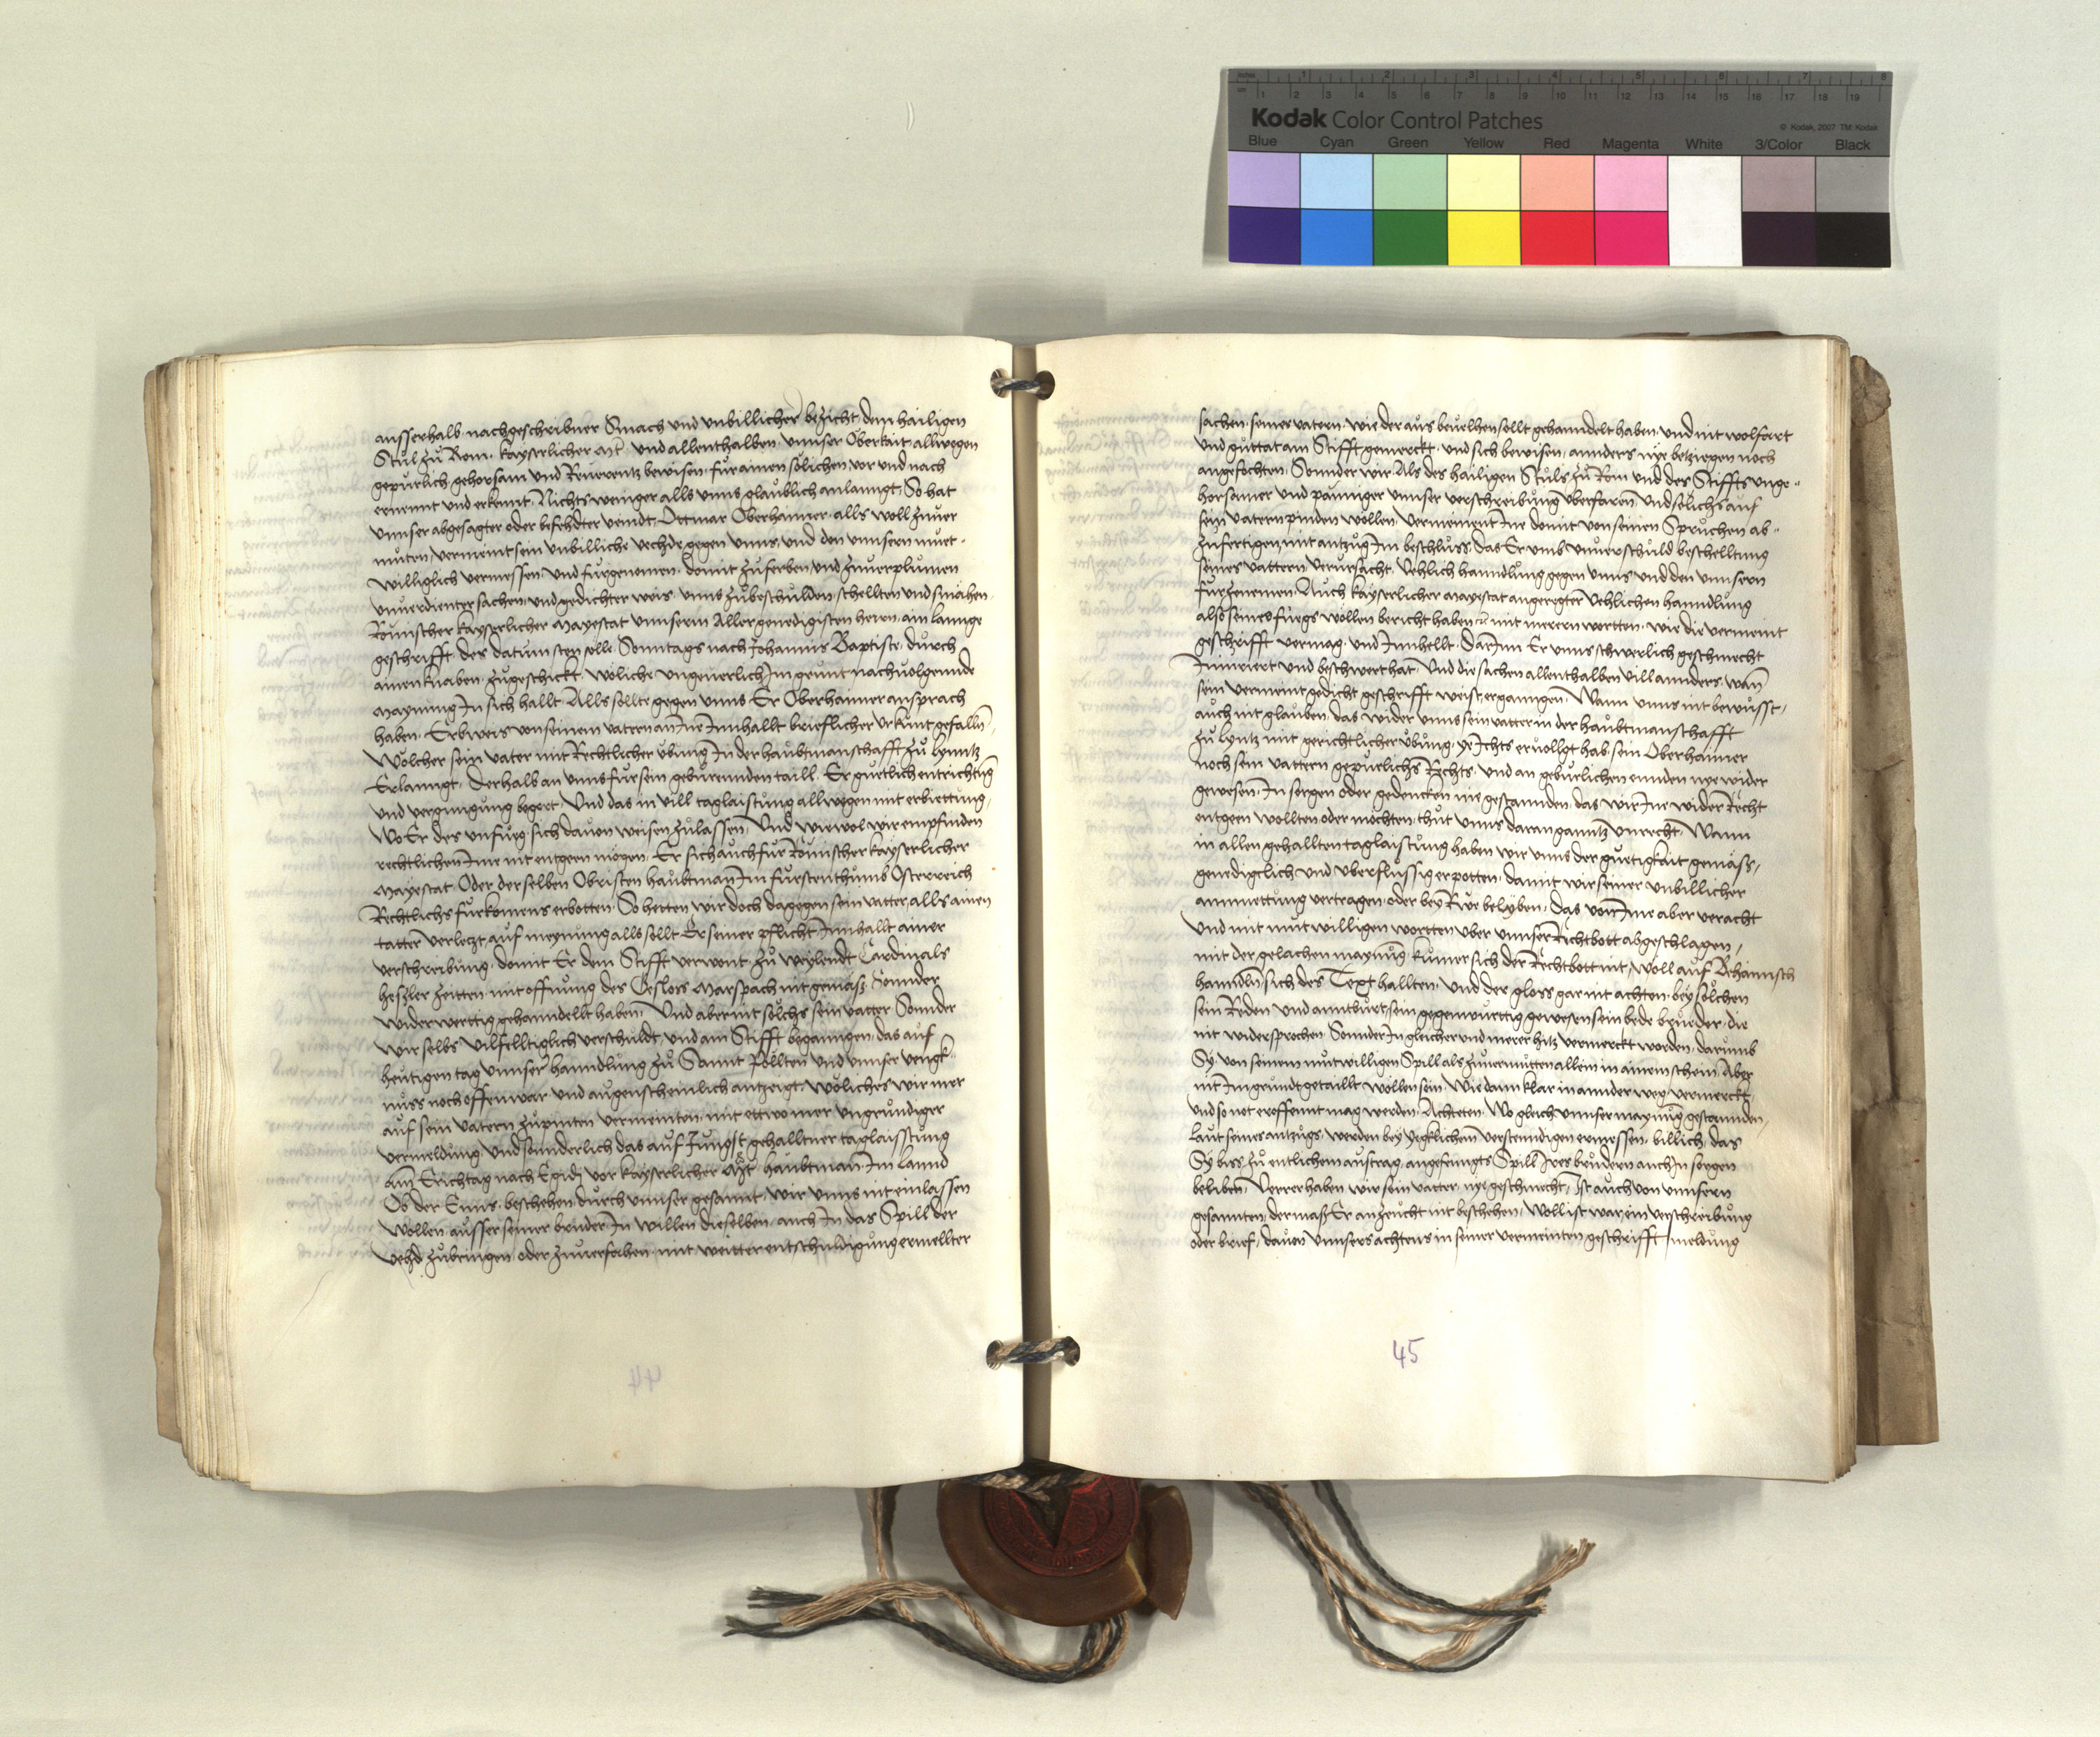 inches 1 2 3 4 5 6 7 8
cm 1 2 3 4 5 6 7 8 9 10 11 12 13 14 15 16 17 18 19
Kodak Color Control Patches © Kodak, 2007 TM: Kodak
Blue Cyan Green Yellow Red Magenta White 3/Color Black
ausserhalb nachgeschribner Smach und unbillicher bezicht dem hailigen
Stul zu Rom kayserlicher und allenthalben unnser Oberkait allwegen
gepurlich gehorsam und Reverentz bewisen fur ainen solichen vor und nach
ernennt und erkennt Nichts weniger alls unns glaublich anlanngt So hat
unnser abgesagter oder befehdter veindt Ottmar Oberhaimer alls woll zuver
muten vermeint sein unbilliche vechde gegen unns und den unnsern muet
williglich vermessen und furgenomen domit zuferben und zuverplumen
unverdienter sachen und gedichter weis unns zubeschulden schellten und smahen
Romischer kayserlicher Mayestat unnserm Allergenedigisten herrn ain lannge
geschrifft des datum sten solle Sonntags nach Johannis Baptiste durch
ainen knaben zugeschickt woliche ungeverlich Im grunt nachvolgennde
maynung In sich hallt Alls sollte gegen unns Er Oberhaimer ansprach
haben Erbweis von seinem vatern an Ine Innhallt brieflicher Urkunt gefalln
Wolcher sein vater mit Rechtlicher ubung In der haubtmanschafft zu Lynntz
Erlanngt derhalb an unns fur sein geburennden taill Er guetlich entrichtung
und vergnugung begert Und das in vill taglaistung allwegen mit erbiettung
Wo Er des unfueg sich davon weisen zulassen Und wiewol wir empfinden
rechtlichen Ime nit entgeen mogen Er sich auch fur Romischer kayserlicher
Mayestat Oder derselben Obristen haubtman Im furstenthumb Osterreich
Rechtlichs furkomens erbotten So hetten wir doch dagegen sein vatter alls ainen
tatter verletzt auf meynung alls sollt Er seiner pflicht Innhallt ainer
verschreibung domit Er dem Stifft verwont zu weylendt Cardinals
hesler zeitten mit offnung des Gslos Marspach nit gemass Sonnder
widerwerttig gehanndellt haben Und aber nit solchs sein vatter Sonnder
wir selbs vilfelltiglich verschuldt und am Stifft begangen das auf
heutigen tag unnser hanndlung zu Sannt Pollten und unnser vengk
nuss noch offenwar und augenscheinlich antzeigt woliches wir mer
auf sein vatern zupinten vermeinten mit ettwo mer ungrundiger
vermeldung und sonnderlich das auf Jungst gehalltner taglaisstung
am Erichtag nach Egidy vor kayserlicher haubtman Im lannd
Ob der Enns beschehen durch unnser gesannt wir unns nit einlassen
wollen ausser seiner bruder In willen dieselben auch In das Spill der
vehd zubringen oder zuverfahen mit weitter entschuldigung ermellter
44
sachen seines vatern wie der aus bevelhen sollt gehanndelt haben und nit wolfart
und guttat am Stifft gemerckt und sich bewisen annders nye betzigen noch
angefochten Sonnder wir Als des hailigen Stuls zu Rom und des Stiffts unge
horsamer und pauniger unnser verschreibung uberfaren und solichs auf
sein vatern pinden wollen Vermeinent Ine domit von seinen Spruchen ab
zufertigen mit antzug Im beschluss das Er umb unverschuld beschelltung
seines vattern verursacht Vehlich hanndlung gegen unns und den unnsern
furzenemen Auch kayserlicher Mayestat angeregter vehlichen hanndlung
also seines fuegs wollen bericht haben mit merern wortten wie die vermeint
geschrifft vermag und Innhellt Darinn Er unns schwerlich geschmecht
Iniuriert und beschwert hat Und die sachen allenthalben vill annders wan
sein vermeint gedicht geschrifft weist erganngen Wann unns nit bewusst
auch nit glauben das wider unns sein vatter in der haubtmanschafft
zu Lyntz mit gerichtlicher ubung ye Ichts ervollgt hab sein Oberhaimer
noch sein vattern gepurlichs Rechts und an geburlichen ennden nye wider
gewesen In sorgen oder gedencken nie gestannden das wir Ine wider Recht
entgeen wollten oder mochten thut unns daran ganntz unrecht Wann
in allen gehallten taglaistung haben wir unns der guetigkait gemass
genediglich und uberflussig erpotten damit wir seiner unbillicher
anmuettung vertragen oder bey Rue beliben das von Ime aber veracht
und mit mutwilligen wortten uber unnser Rechtbott abgeschlagen
mit der gelachen maynung kumer sich der Rechtbott nit Woll auf Behamisch
hanndln sich des Text hallten und der gloss gar nit achten bey solchen
sein Reden und anntburt sein gegenwurttig gewesen sein bede brueder die
nit widersprochen Sonnder In gleicher und merer hitz vermerckt worden darumb
Sy von seinem mutwilligen Spill als zuvermutten allein in ainem schein Aber
nit Im grundt getaillt wollen sein Wie dann klar in annder weg vermerckt
und so not eroffennt mag werden Achteten Wo gleich unnser maynung gestannden
laut seines antzugs werden bey yegklichem verstenndigen ermessen billich das
Sy biss zu entlichem austrag angefenngts Spill Ires brudern auch In sorgen
beliben Verrer haben wir sein vatter nye geschmecht Ist auch von unnsern
gesannten dermass Er anzeucht nit beschehen Woll ist war ein verschreibung
oder brief davon unnsers achtens in seiner vermeinten geschrifft meldung
45